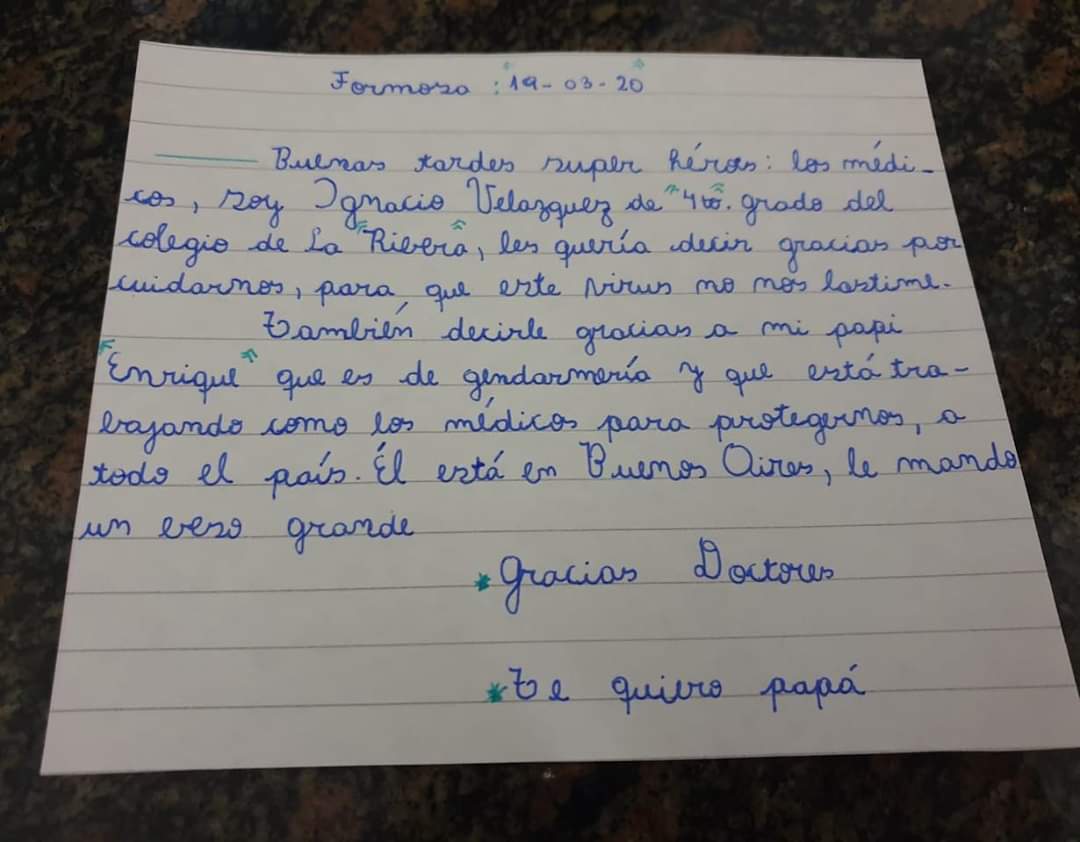 Formosa : "19-03-20"
Buenas tardes super héroes: los médi-
cos, soy Ignacio Velazquez de "4to". grado del
colegio de La "Ribera", les quería decir gracias por
cuidarnos, para que este virus no nos lastime.
También decirle gracias a mi papi
"Enrique" que es de gendarmería y que está tra-
bajando como los médicos para protegernos, a
todo el país. Él está en Buenos Aires, le mando
un beso grande
* Gracias Doctores
* Te quiero papá